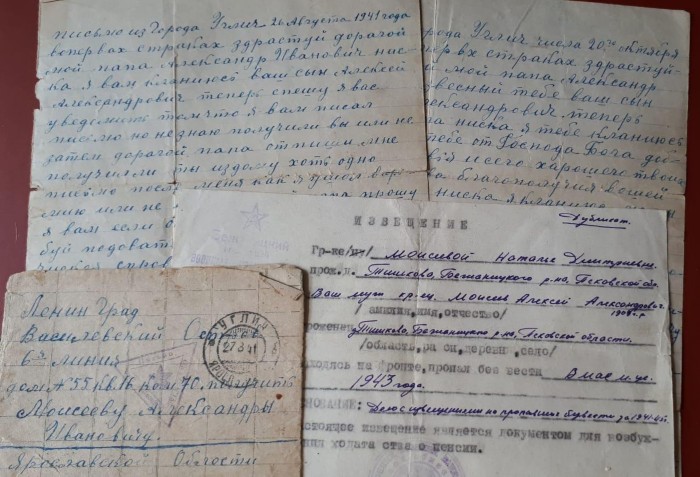 письмо из Города Углич 26 Августа 1941 года
вопервах страках здраствуй дорогой
мой папа Александр Иванович нис-
ка я вам кланиюс ваш сын Алексей
Александрович теперь спешу я вас
уведомить томчто я вам писал
письмо но незнаю получили вы или не
затем дорогой папа отпиши мне
получили ты издому хоть одно
письмо посл меня как я ушол
нию или не прошу
я вам если
буй подоват
Города Углич числа 20го октября
вх страках здраствуй-
мой папа Александр
звесный тебе ваш сын
ександрович теперь
ниска я тебе кланиюсь
тебе от Господа Бога
всего харошего
благополучия вошей
ниска я кланиюс
ИЗВЕЩЕНИЕ
Дубликат.
Гр-ке/ну/ Моисеевой Наталье Дмитриевне
прож.д. Тишково, Бежаницкого р-на, Псковской обл
Ваш муж кр-ец Моисеев Алексей Александрович
1908 г.р
/ амилия,имя,отчество/
рожени д.Тишково, Бежаницкого р-на, Псковской области.
/область,ра он, деревн ,село/
ходясь на фронте,пропал без вести В мае м-це
1943 года.
НОВАНИЕ: Дело с извещениями на пропавших без вести за 1941-45г.
стоящее извещение является документом для возбуж-
ния ходата ства о пенсии.
Ленин Град
Василевский Ост
6я линия
дом № 55 кв.16 ком 70. получить
Моисеву Александры
Ивановичу.
Ярославской Области
УГЛИЧ
27 8 41
ЯРО